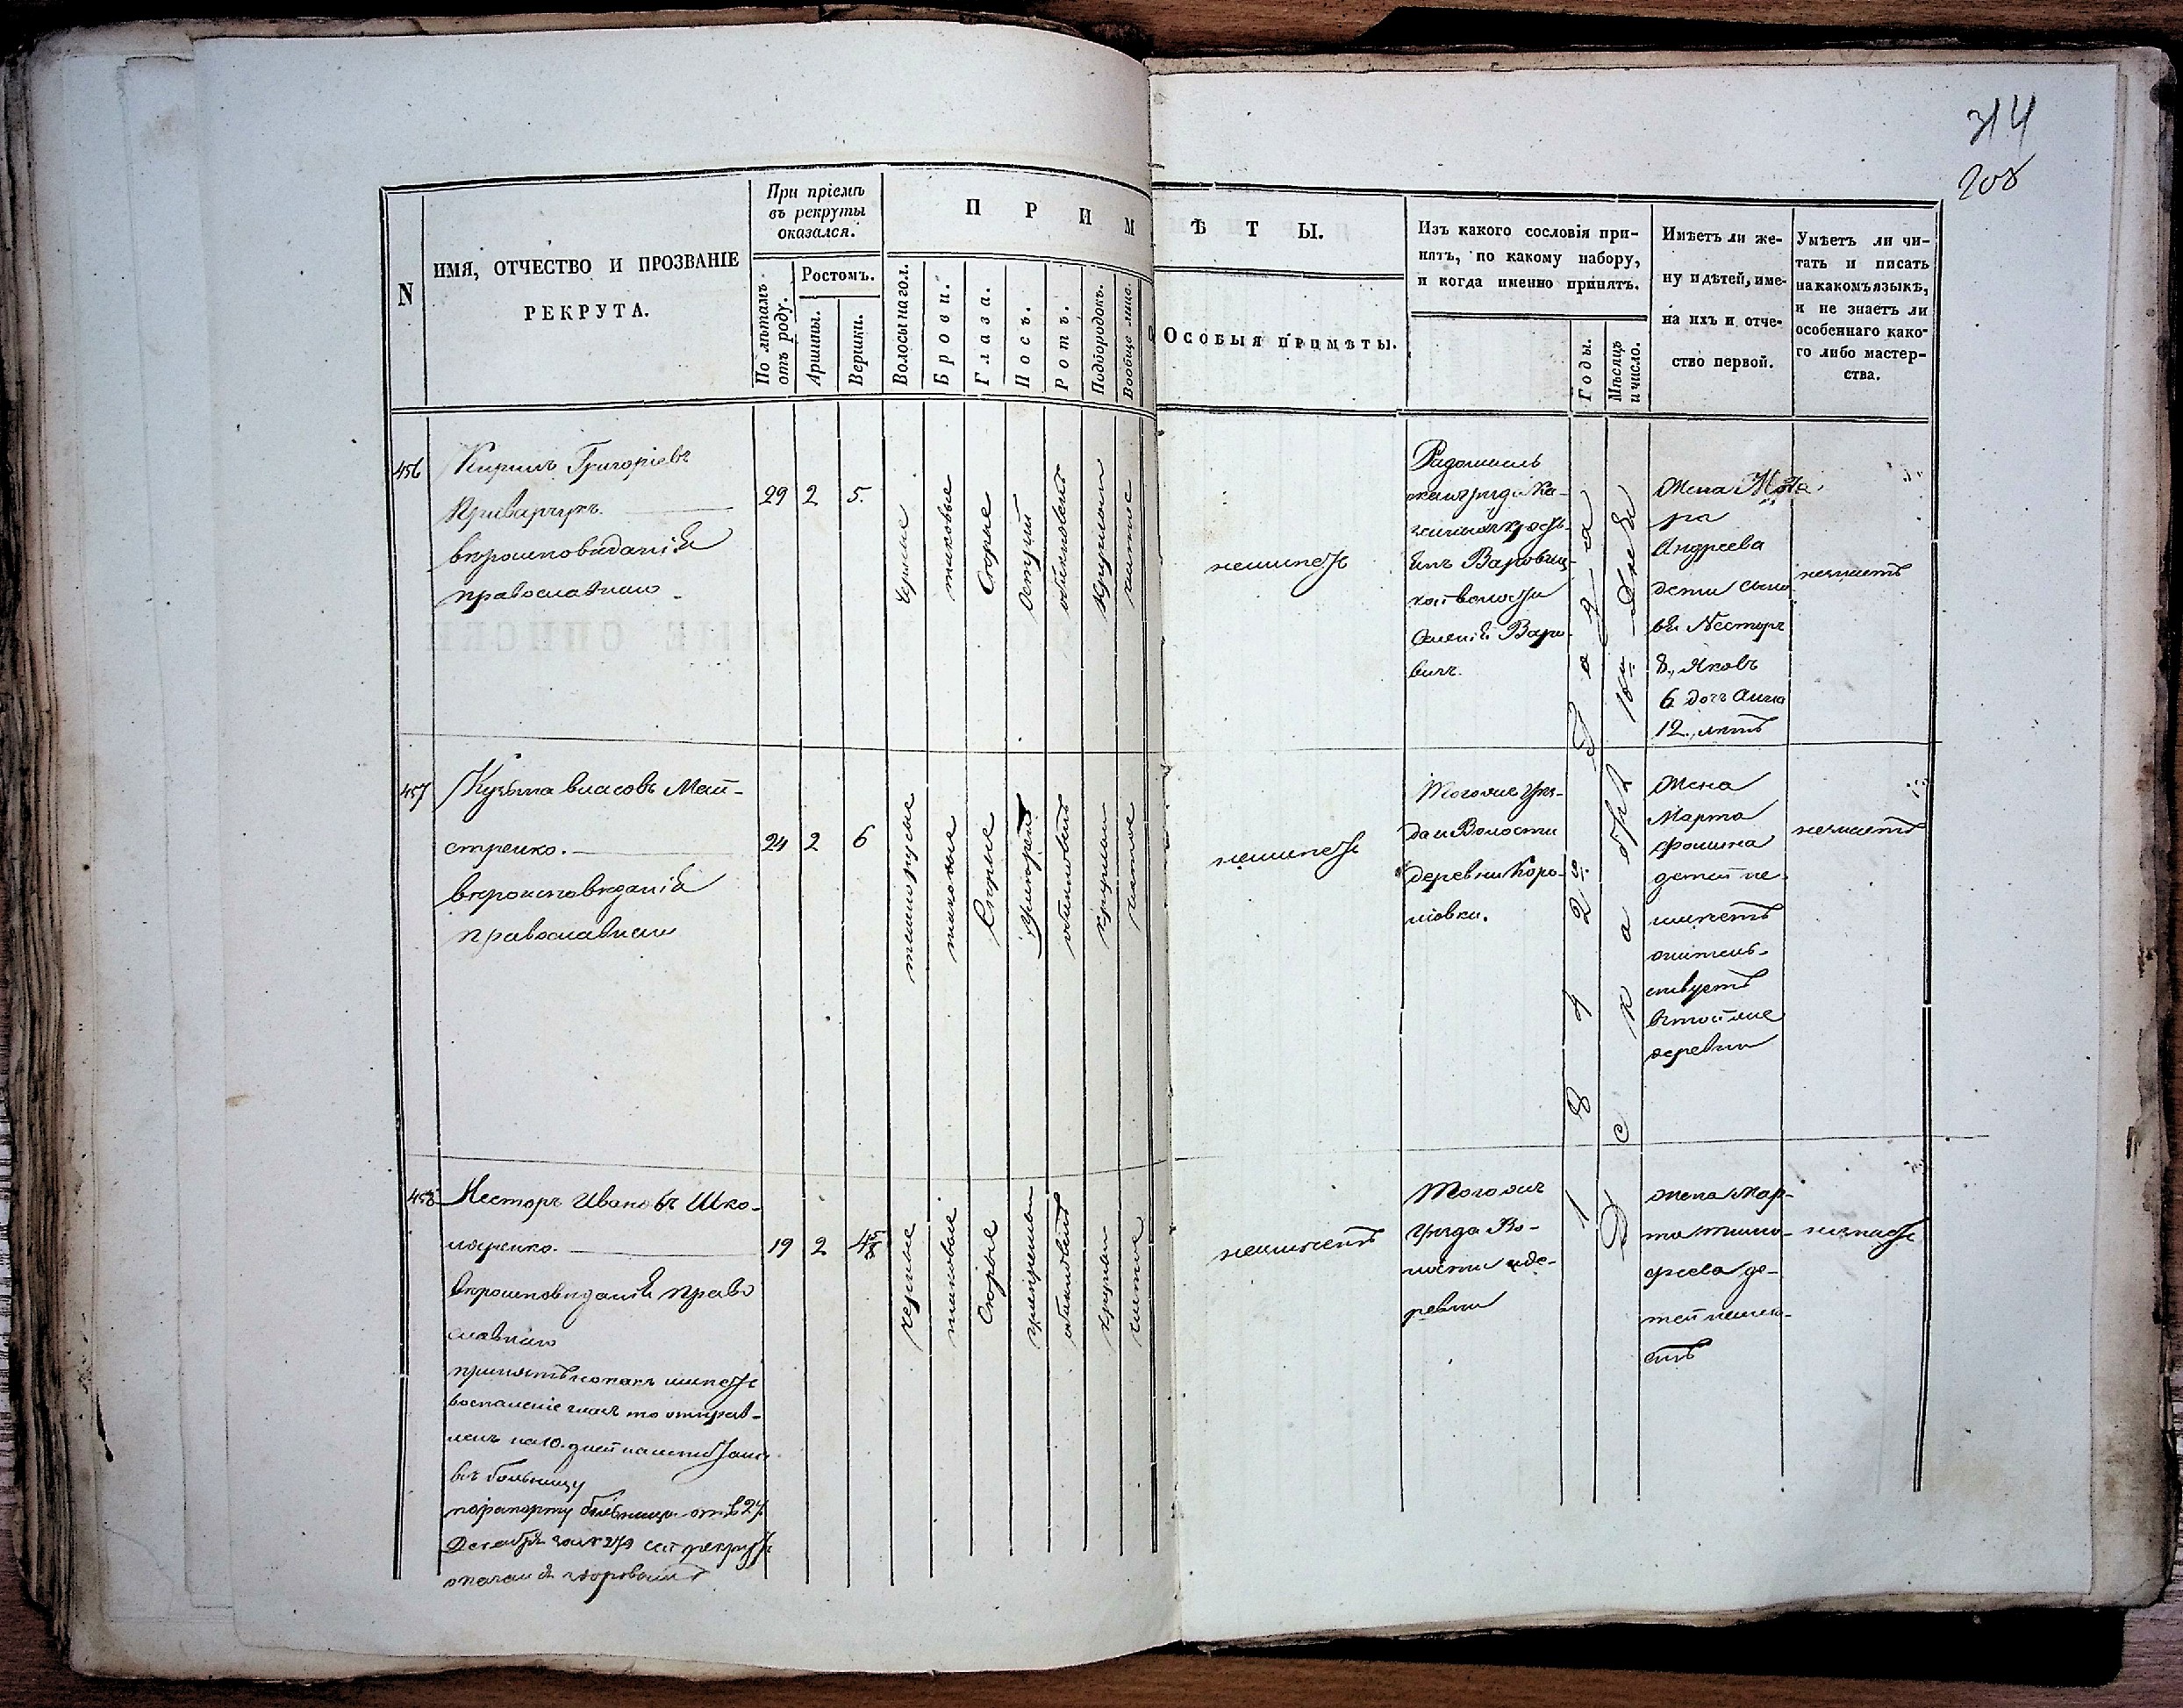 314
208
N
ИМЯ, ОТЧЕСТВО И ПРОЗВАНІЕ
РЕКРУТА.
При пріемѣ
въ рекруты
оказался.
По лѣтамъ
отъ роду.
Ростомъ.
Аршины.
Вершки.
ПРИМѢТЫ.
Волосы на гол.
Брови.
Глаза.
Носъ.
Ротъ.
Подбородокъ.
Вообще лице.
Особыя примѣты.
Изъ какого сословія при-
нятъ, по какому набору,
и когда именно принятъ.
Годы.
Мѣсяцъ
и число.
Имѣетъ ли же-
ну и дѣтей, име-
на ихъ и отче-
ство первой.
Умѣетъ ли чи-
тать и писать
на какомъ языкѣ,
и не знаетъ ли
особеннаго како-
го либо мастер-
ства.
456
Кирилъ Григоріевъ
Приварчукъ.
вѣроисповѣданія
православнаго
29 2 5.
Черные
таковые
Сѣрые
Острый
обыкновенъ
Круглый
чистое
неимѣетъ
Радомысль
скаго уѣзда Ка-
зенныхъ кресть-
янъ Варовиц-
кой волости
Селенія Варо-
вичъ.
Жена
Андреева
дети сыно
вья Несторъ
8., Яковъ
6 доч Анна
12., лѣтъ
незнаетъ
457
Кузьма власовъ Май-
стренко.
вѣроисповѣданія
православнаго
24 2 6
темнорусые
таковые
Сѣрые
Умѣрен
обыкновен
круглый
чистое
неимѣетъ
Тогоже Уѣз-
да и Волости
деревни Коро-
левки.
Жена
Марта
фомина
детей не
имѣетъ
жител-
ствуетъ
втойже
деревни
незнаетъ
1842 года
Декабря 18 Дня
458
Несторъ Ивановъ Шко-
ляренко.
Вѣроисповѣданія Право
славнаго
принятъ но какъ имѣетъ
воспаленіе глазъ то отправ-
ленъ на 10. дней
въ больницу
порапорту больницы отъ 24
Декабря за № 279 сей рекрутъ
оказался здоровымъ
19 2 4
черные
таковые
Сѣрые
умѣренный
обыкновен
круглый
чистое
неимѣетъ
Тогоже
Уѣзда Во-
лости иде-
ревни
Жена Мар-
та Тимо-
феева де-
тей неиме-
етъ
незнаетъ